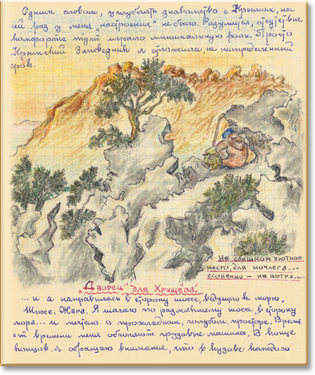 Одним словом, углублять знакомство с Крымом, на
сей раз у меня настроения не было. Разумеется, отсутствие
комфорта тут играло минимальную роль. Просто
Крымский Заповедник я отложила, на неопределенный
срок.
Не слишком уютное
место для ночлега...
особенно - на ветра...
"Дворец" для Хрущева!
... и я направилась в сторону шоссе, ведущего к морю.
Шоссе. Жара. Я шагаю по размякшему шоссе в сторону
моря... и мечтаю о прохладном, голубом, просторе. Время
от времени меня обгоняют грузовые машины. В конце
концов, я обращаю внимание, что в кузове каждого